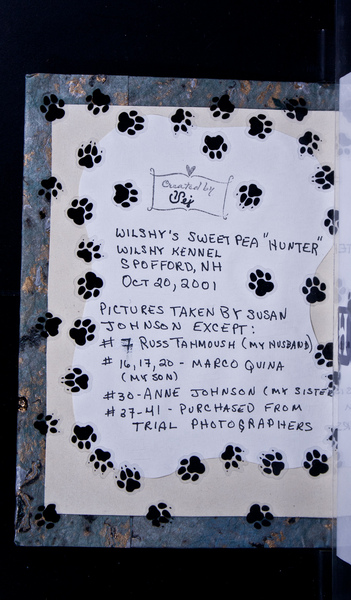 Created by
WILSHY'S SWEET PEA "HUNTER"
WILSHY KENNEL
SPOFFORD, NH
OCT 20, 2001
PICTURES TAKEN BY SUSAN
JOHNSON EXCEPT:
# 7 RUSS TAHMOUSH (MY HUSBAND)
# 16, 17, 20 - MARCO QUINA
(MY SON)
#30 - ANNE JOHNSON (MY SISTE
#37-41 - PURCHASED FROM
TRIAL PHOTOGRAPHERS